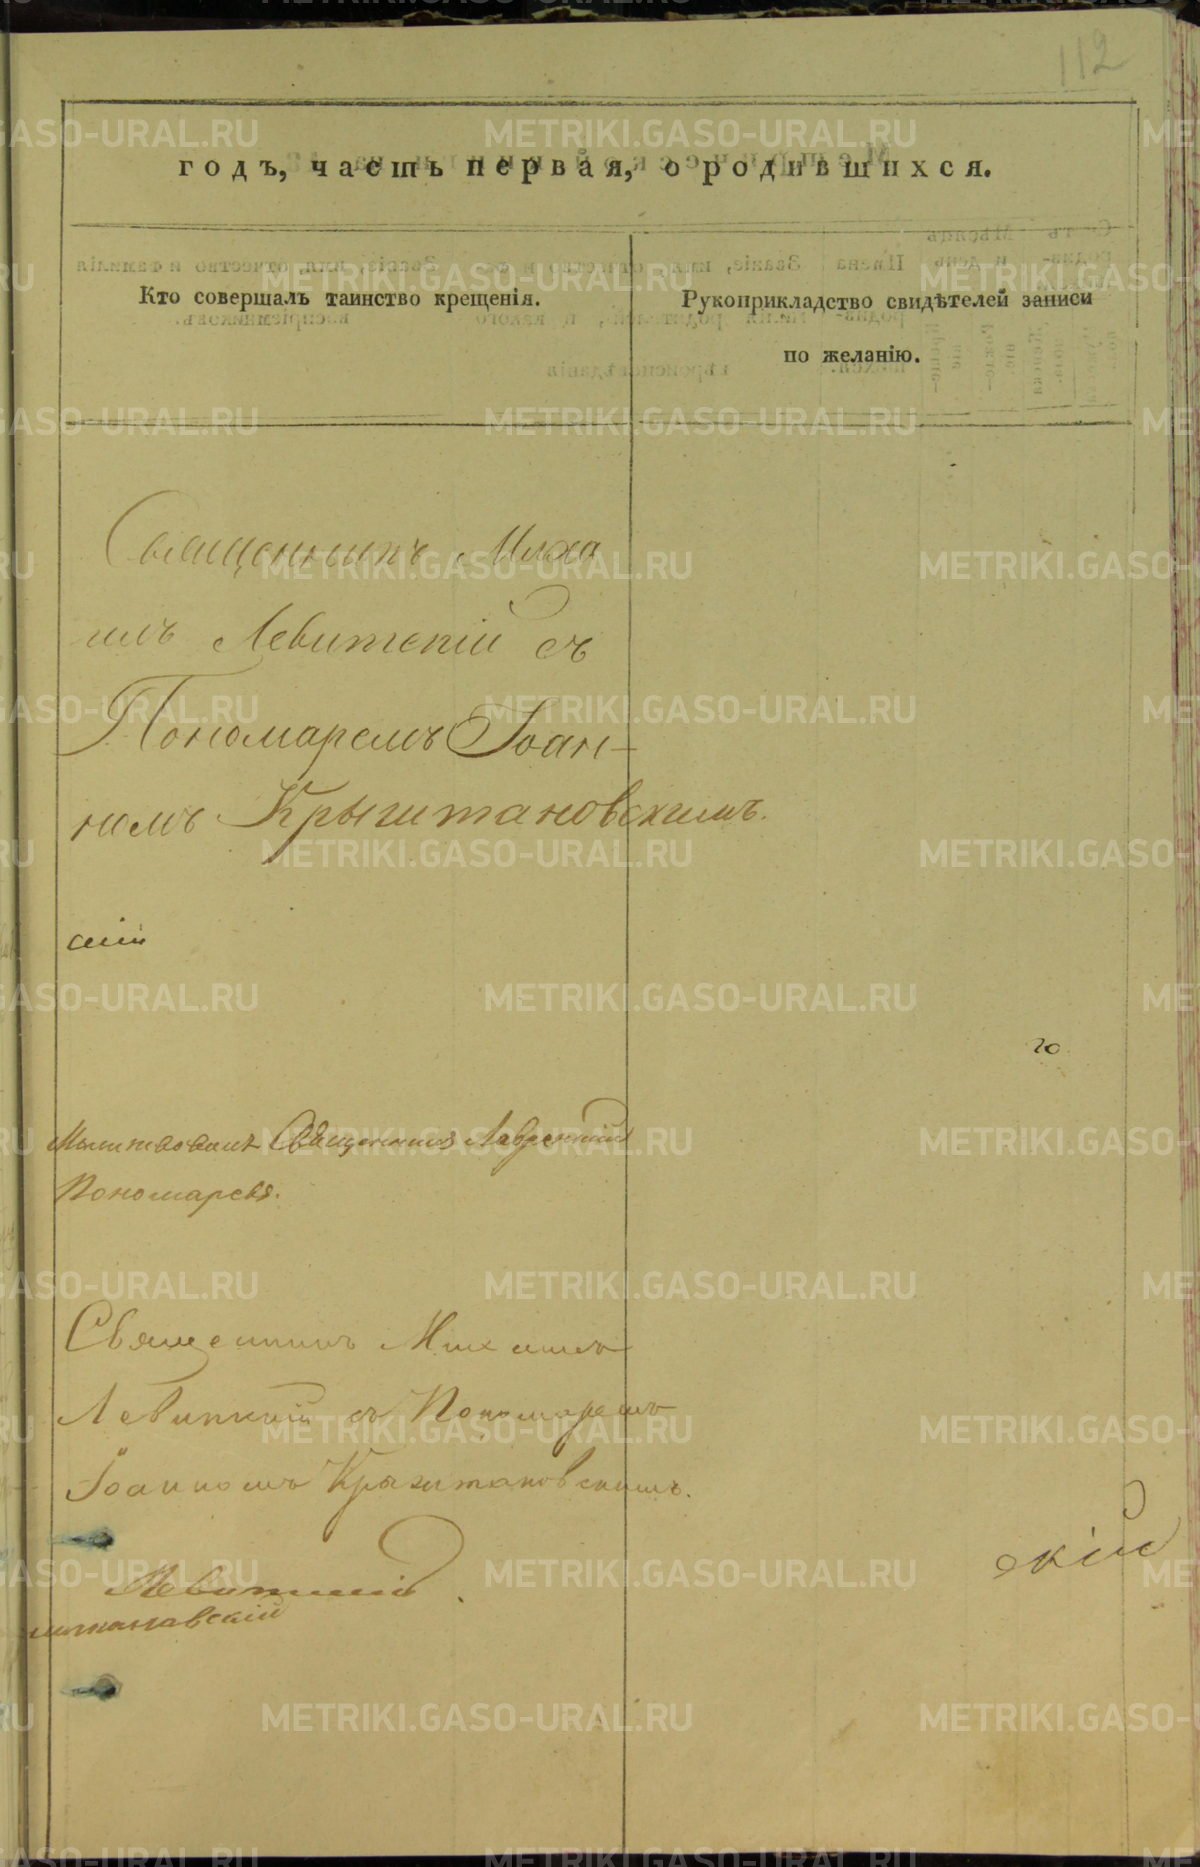 112
годъ, часть первая, о родившихся.
Кто совершалъ таинство крещенія.
Рукоприкладство свидѣтелей записи
по желанію.
Священникъ Миха
илъ Левитскій съ
Пономаремъ Іоан-
номъ Крыжтановскимъ.
20
Священникъ Лаврентій
Пономаревъ.
Священникъ Михаилъ
Левицкій съ Пономаремъ
Іоанномъ Крыжтановскимъ.
скій
Левитскій
штановскій
METRIKI.GASO-URAL.RU